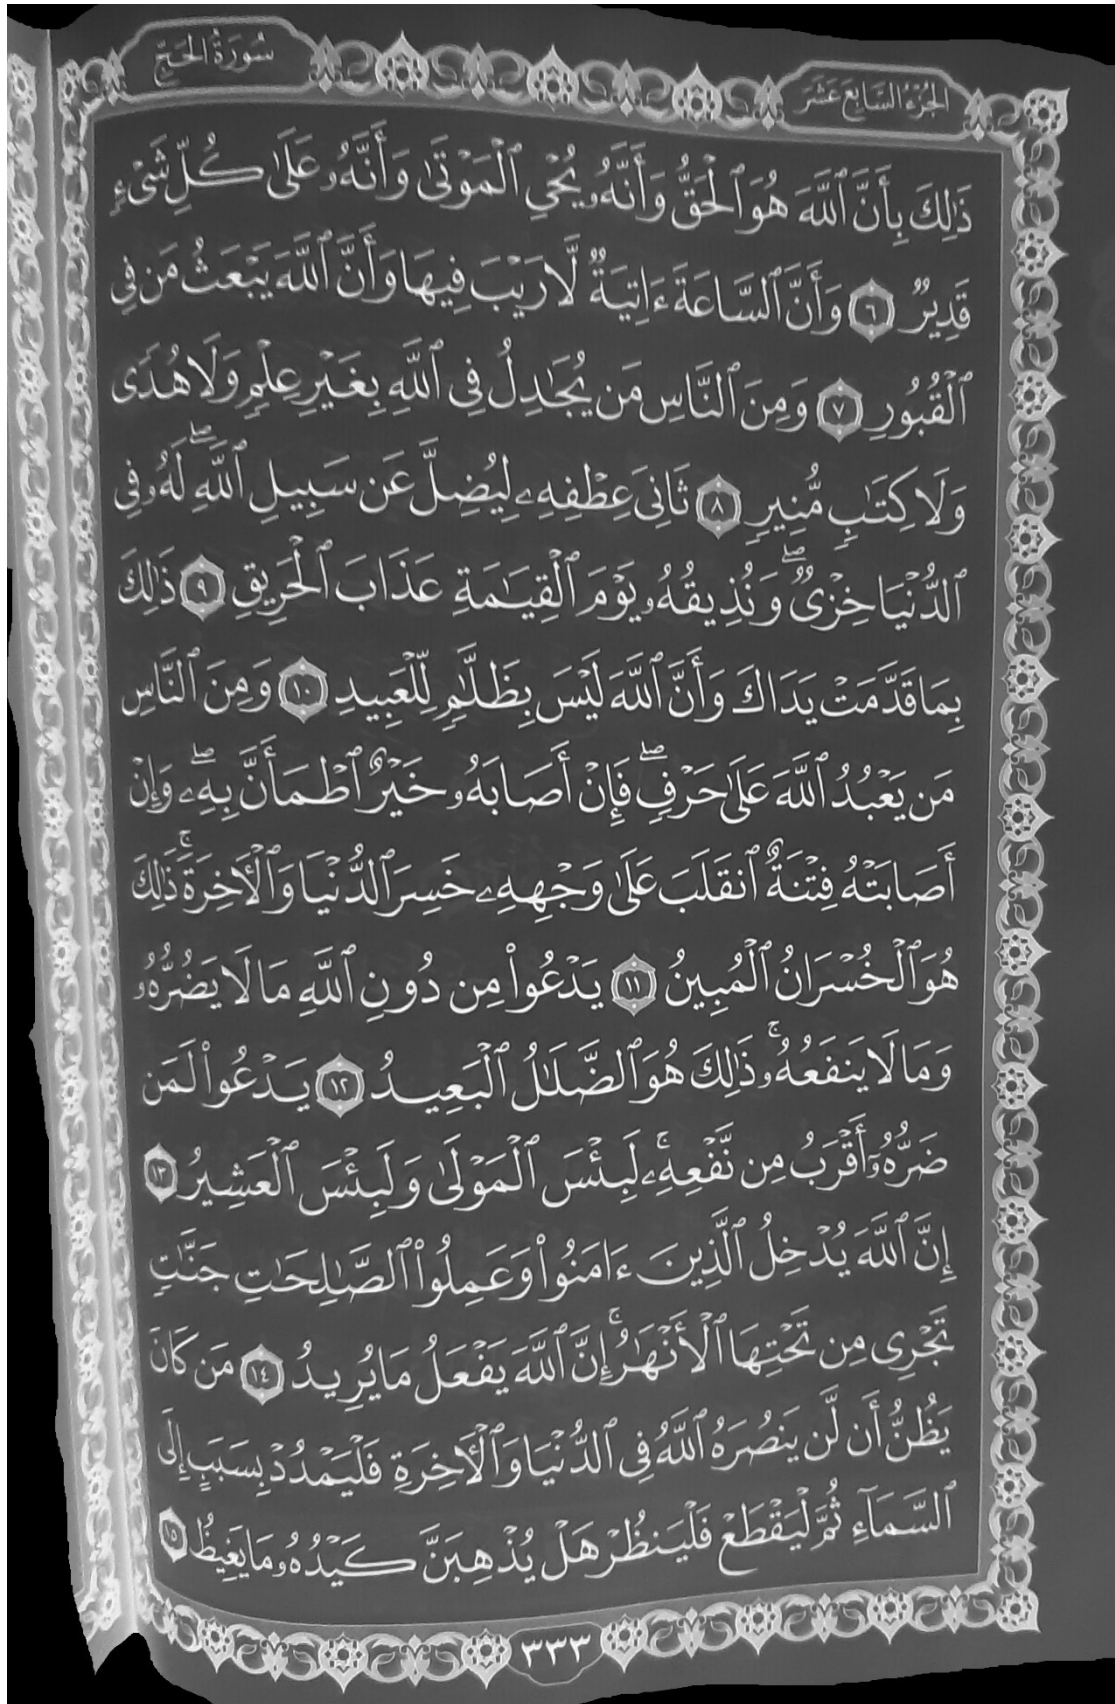 الجزء السابع عشر
سورة الحج
ذَٰلِكَ بِأَنَّ ٱللَّهَ هُوَ ٱلْحَقُّ وَأَنَّهُۥ يُحْيِ ٱلْمَوْتَىٰ وَأَنَّهُۥ عَلَىٰ كُلِّ شَىْءٍ
قَدِيرٌ ٦ وَأَنَّ ٱلسَّاعَةَ ءَاتِيَةٌ لَّا رَيْبَ فِيهَا وَأَنَّ ٱللَّهَ يَبْعَثُ مَن فِى
ٱلْقُبُورِ ٧ وَمِنَ ٱلنَّاسِ مَن يُجَٰدِلُ فِى ٱللَّهِ بِغَيْرِ عِلْمٍ وَلَا هُدًى
وَلَا كِتَٰبٍ مُّنِيرٍ ٨ ثَانِىَ عِطْفِهِۦ لِيُضِلَّ عَن سَبِيلِ ٱللَّهِۖ لَهُۥ فِى
ٱلدُّنْيَا خِزْىٌۖ وَنُذِيقُهُۥ يَوْمَ ٱلْقِيَٰمَةِ عَذَابَ ٱلْحَرِيقِ ٩ ذَٰلِكَ
بِمَا قَدَّمَتْ يَدَاكَ وَأَنَّ ٱللَّهَ لَيْسَ بِظَلَّٰمٍ لِّلْعَبِيدِ ١٠ وَمِنَ ٱلنَّاسِ
مَن يَعْبُدُ ٱللَّهَ عَلَىٰ حَرْفٍۖ فَإِنْ أَصَابَهُۥ خَيْرٌ ٱطْمَأَنَّ بِهِۦۖ وَإِنْ
أَصَابَتْهُ فِتْنَةٌ ٱنقَلَبَ عَلَىٰ وَجْهِهِۦ خَسِرَ ٱلدُّنْيَا وَٱلْأَخِرَةَۚ ذَٰلِكَ
هُوَ ٱلْخُسْرَانُ ٱلْمُبِينُ ١١ يَدْعُوا۟ مِن دُونِ ٱللَّهِ مَا لَا يَضُرُّهُۥ
وَمَا لَا يَنفَعُهُۥۚ ذَٰلِكَ هُوَ ٱلضَّلَٰلُ ٱلْبَعِيدُ ١٢ يَدْعُوا۟ لَمَن
ضَرُّهُۥٓ أَقْرَبُ مِن نَّفْعِهِۦۚ لَبِئْسَ ٱلْمَوْلَىٰ وَلَبِئْسَ ٱلْعَشِيرُ ١٣
إِنَّ ٱللَّهَ يُدْخِلُ ٱلَّذِينَ ءَامَنُوا۟ وَعَمِلُوا۟ ٱلصَّٰلِحَٰتِ جَنَّٰتٍ
تَجْرِى مِن تَحْتِهَا ٱلْأَنْهَٰرُۚ إِنَّ ٱللَّهَ يَفْعَلُ مَا يُرِيدُ ١٤ مَن كَانَ
يَظُنُّ أَن لَّن يَنصُرَهُ ٱللَّهُ فِى ٱلدُّنْيَا وَٱلْأَخِرَةِ فَلْيَمْدُدْ بِسَبَبٍ إِلَى
ٱلسَّمَآءِ ثُمَّ لْيَقْطَعْ فَلْيَنظُرْ هَلْ يُذْهِبَنَّ كَيْدُهُۥ مَا يَغِيظُ ١٥
٣٣٣